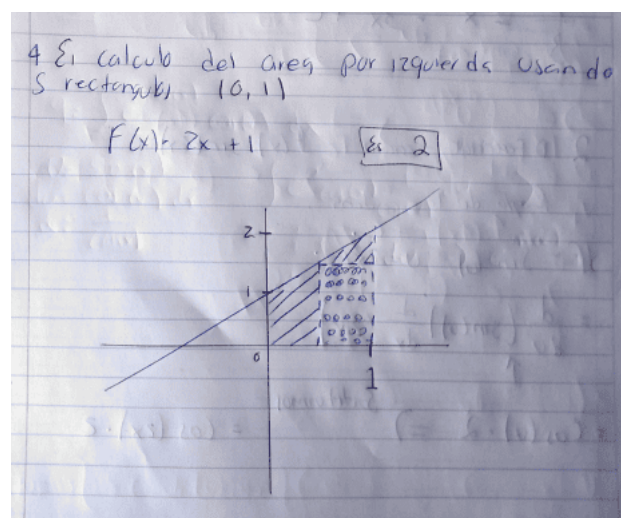 4 El calculo del area por izquierda usando
5 rectangulos [0, 1]
F(x) = 2x + 1
Es 2
2
1
0
1